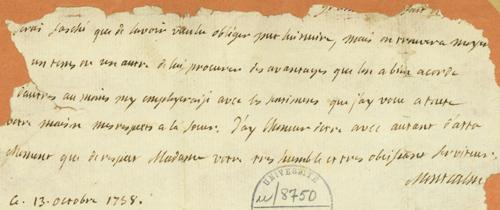 serai fasché que de lavoir voulu obliger put lui nuire, mais on trouvera moyen
un tems ou un autre de lui procurer des avantages que lon a bien acordé
dautres au moins my employerai je avec les sentimens que jay voué a toute
votre maison mes respects a la sœur. J'ay lhonneur detre avec autant datta
chement que de respect Madame votre tres humble et tres obeissant serviteur.
Montcalm
Ce 13. octobre 1758.
UNIVERSITÉ
u/8750